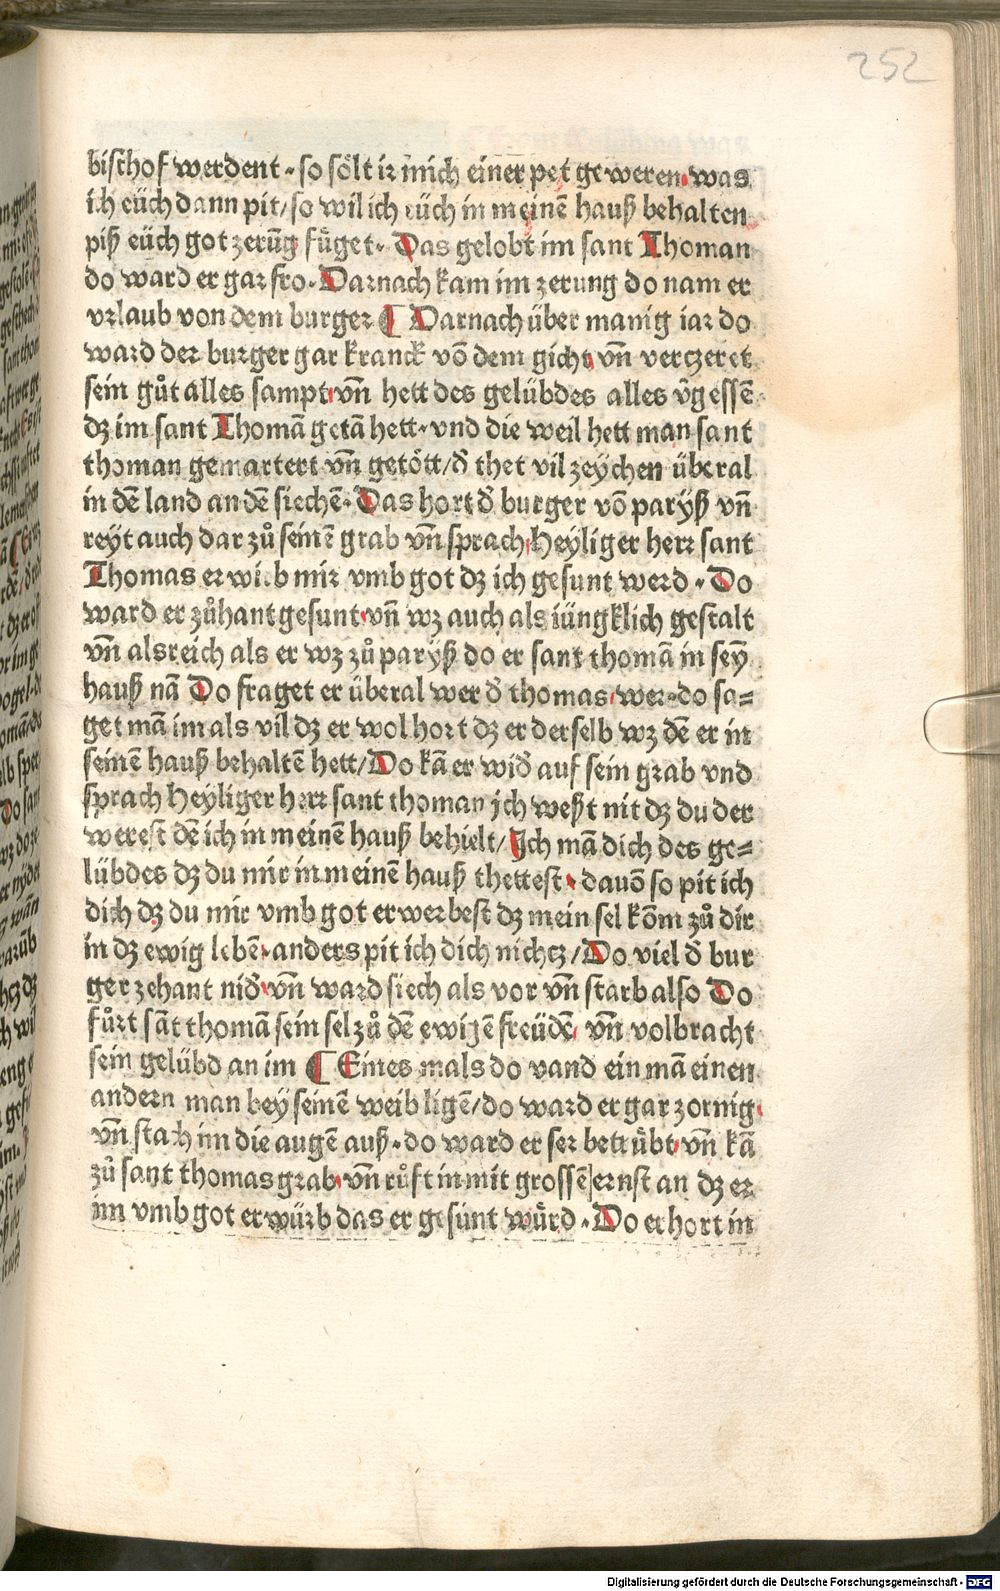 252
bischof werdent. so sölt ir mich einer pet geweren. was
ich eüch dann pit/so wil ich eüch in meinē hauß behalten
piß eüch got zerūg füget. Das gelobt im sant Thoman
do ward er gar fro. Darnach kam im zerung do nam er
vrlaub von dem burger ¶ Darnach über manig iar do
ward der burger gar kranck vō dem gicht. vn̄ verczeret
sein gůt alles sampt. vn̄ hett des gelübdes alles v̄gessē
dz im sant Thomā getā hett. vnd die weil hett man sant
thoman gemartert vn̄ getött/d̄ thet vil zeychen überal
in dē land an dē siechē. Das hort d̄ burger vō paryß vn̄
reyt auch dar zů seinē grab vn̄ sprach. Heyliger herr sant
Thomas erwirb mir vmb got dz ich gesunt werd. Do
ward er zůhant gesunt. vn̄ wz auch als iüngklich gestalt
vn̄ als reich als er wz zů paryß do er sant thomā in seȳ
hauß nā Do fraget er überal wer d̄ thomas. wer. do sa=
get mā im als vil dz er wol hort dz er derselb wz dē er in
seinē hauß behaltē hett/Do kā er wid̄ auf sein grab vnd
sprach Heyliger herr sant thoman jch weßt nit dz du der
werest dē ich in meinē hauß behielt/Ich mā dich des ge=
lübdes dz du mir in meinē hauß thettest. dauō so pit ich
dich dz du mir vmb got erwerbest dz mein sel kōm zů dir
in dz ewig lebē. anders pit ich dich nichcz/Do viel d̄ bur
ger zehant nid̄. vn̄ ward siech als vor vn̄ starb also Do
fůrt sāt thomā sein sel zů dē ewigē freüdē. vn̄ volbracht
sein gelübd an im ¶ Eines mals do vand ein mā einen
andern man bey seinē weib ligē/do ward er gar zornig.
vn̄ stach im die augē auß. do ward er ser betrübt. vn̄ kā
zů sant thomas grab. vn̄ růft in mit grossē ernst an dz er
im vmb got erwürb das er gesunt würd. Do erhort in
Digitalisierung gefördert durch die Deutsche Forschungsgemeinschaft - DFG